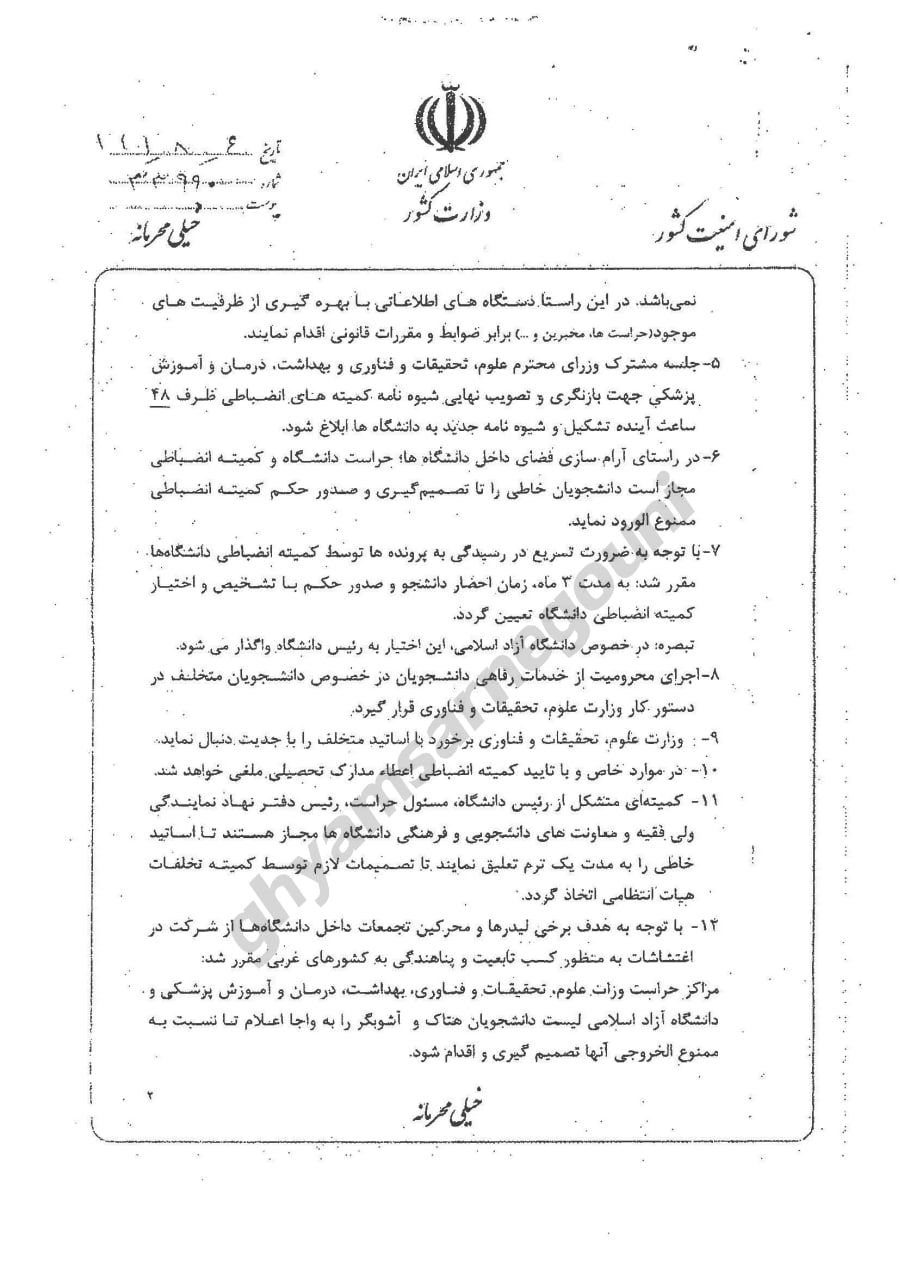 جمهوری اسلامی ایران
وزارت کشور
شورای امنیت کشور
تاریخ
شماره
پیوست
خیلی محرمانه
نمی‌باشد. در این راستا دستگاه های اطلاعاتی با بهره گیری از ظرفیت های
موجود(حراست ها، مخبرین و ...) برابر ضوابط و مقررات قانونی اقدام نمایند.
۵- جلسه مشترک وزرای محترم علوم، تحقیقات و فناوری و بهداشت، درمان و آموزش
پزشکی جهت بازنگری و تصویب نهایی شیوه نامه کمیته های انضباطی ظرف ۴۸
ساعت آینده تشکیل و شیوه نامه جدید به دانشگاه ها ابلاغ شود.
۶- در راستای آرام سازی فضای داخل دانشگاه ها؛ حراست دانشگاه و کمیته انضباطی
مجاز است دانشجویان خاطی را تا تصمیم‌گیری و صدور حکم کمیته انضباطی
ممنوع الورود نماید.
۷- با توجه به ضرورت تسریع در رسیدگی به پرونده ها توسط کمیته انضباطی دانشگاه‌ها
مقرر شد: به مدت ۳ ماه، زمان احضار دانشجو و صدور حکم با تشخیص و اختیار
کمیته انضباطی دانشگاه تعیین گردد.
تبصره: در خصوص دانشگاه آزاد اسلامی، این اختیار به رئیس دانشگاه واگذار می شود.
۸- اجرای محرومیت از خدمات رفاهی دانشجویان در خصوص دانشجویان متخلف در
دستور کار وزارت علوم، تحقیقات و فناوری قرار گیرد.
۹- وزارت علوم، تحقیقات و فناوری برخورد با اساتید متخلف را با جدیت دنبال نماید.
۱۰- در موارد خاص و با تایید کمیته انضباطی اعطاء مدارک تحصیلی ملغی خواهد شد.
۱۱- کمیته‌ای متشکل از رئیس دانشگاه، مسئول حراست، رئیس دفتر نهاد نمایندگی
ولی فقیه و معاونت های دانشجویی و فرهنگی دانشگاه ها مجاز هستند تا اساتید
خاطی را به مدت یک ترم تعلیق نمایند تا تصمیمات لازم توسط کمیته تخلفات
هیات انتظامی اتخاذ گردد.
۱۲- با توجه به هدف برخی لیدرها و محرکین تجمعات داخل دانشگاه‌ها از شرکت در
اغتشاشات به منظور کسب تابعیت و پناهندگی به کشورهای غربی مقرر شد:
مراکز حراست وزات علوم، تحقیقات و فناوری، بهداشت، درمان و آموزش پزشکی و
دانشگاه آزاد اسلامی لیست دانشجویان هتاک و آشوبگر را به واجا اعلام تا نسبت به
ممنوع الخروجی آنها تصمیم گیری و اقدام شود.
۲
خیلی محرمانه
ghyamsarnagouni